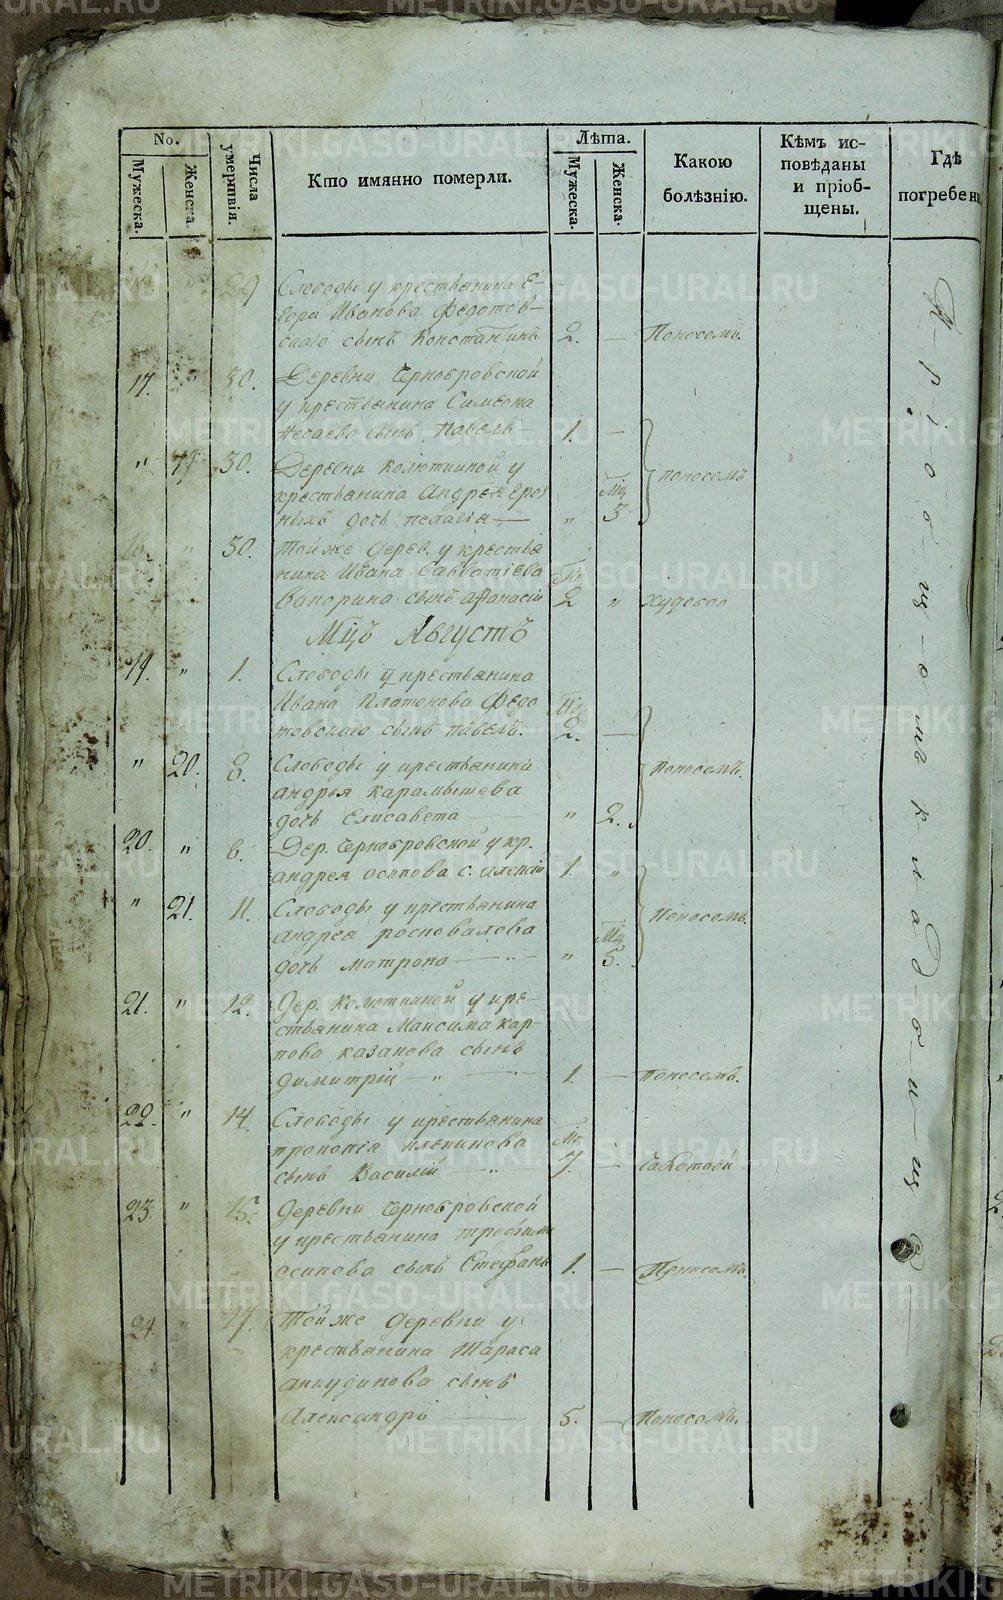 No.
Мужеска.
Женска.
Числа умертвія.
Кто имянно померли.
Лѣта.
Мужеска.
Женска.
Какою болѣзнію.
Кѣмъ ис-
повѣданы
и пріоб-
щены.
Гдѣ
погребен
29 Слободы у крестьянина Е-
гора Иванова Федотов-
скаго сынъ Константинъ 2. — Поносомъ.
17. " 30. Деревни Чернобровской
у крестьянина Симеона
Нечаева сынъ Павелъ — 1. —
" 19 30. Деревни Колюткиной у
крестьянина Андрея
дочь Пелагія — " Мц 3 поносомъ
18. " 30. Той же дерев. у крестья
нина Ивана Савватіева
сынъ Афанасій Мц 2 "
Мцъ Августъ
19. " 1. Слободы у крестьянина
Ивана Платонова Федо
товскаго сынъ Павелъ. Мц 2. —
" 20. 3. Слободы у крестьянина
Андрея Карамышева
дочь Елисавета — " 2. Поносомъ.
20. " 6. Дер. Чернобровской у кр.
Андрея Осипова с. Алексій 1. "
" 21. 11. Слободы у крестьянина
Андрея Росповалова
дочь Матрона — " Мц 5. Поносомъ.
21. " 12. Дер. Колюткиной у кре-
стьянина Максима Кар-
пова Казанова сынъ
Димитрій — " — 1. — Поносомъ.
22. " 14. Слободы у крестьянина
Прокопія
сынъ Василій — " Мц 7. —
23. " 15. Деревни Чернобровской
у крестьянина Трофима
Осипова сынъ Стефанъ 1. — Поносомъ.
24. " 17. Той же деревни у
крестьянина Тараса
Анкудинова сынъ
Александръ — 5. — Поносомъ.
METRIKI.GASO-URAL.RU